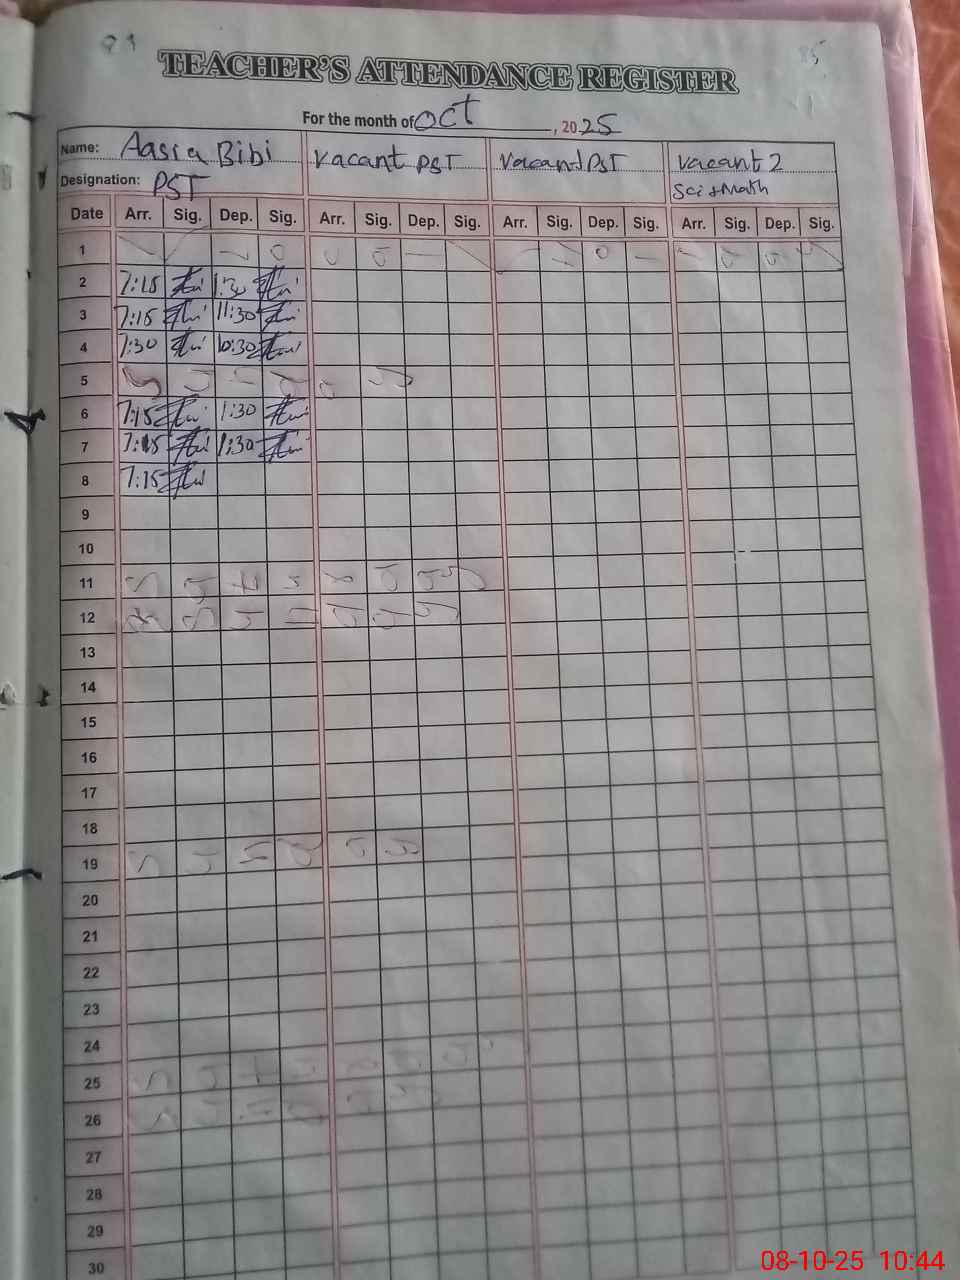 TEACHER'S ATTENDANCE REGISTER
For the month of OCT, 2025
Name: Aasia Bibi Vacant PST Vacant PST Vacant 2
Designation: PST Sci+Math
Date Arr. Sig. Dep. Sig. Arr. Sig. Dep. Sig. Arr. Sig. Dep. Sig. Arr. Sig. Dep. Sig.
1
2 7:15 1:30
3 7:15 11:30
4 7:30 10:30
5
6 7:15 1:30
7 7:15 1:30
8 7:15
9
10
11
12
13
14
15
16
17
18
19
20
21
22
23
24
25
26
27
28
29
30
08-10-25 10:44